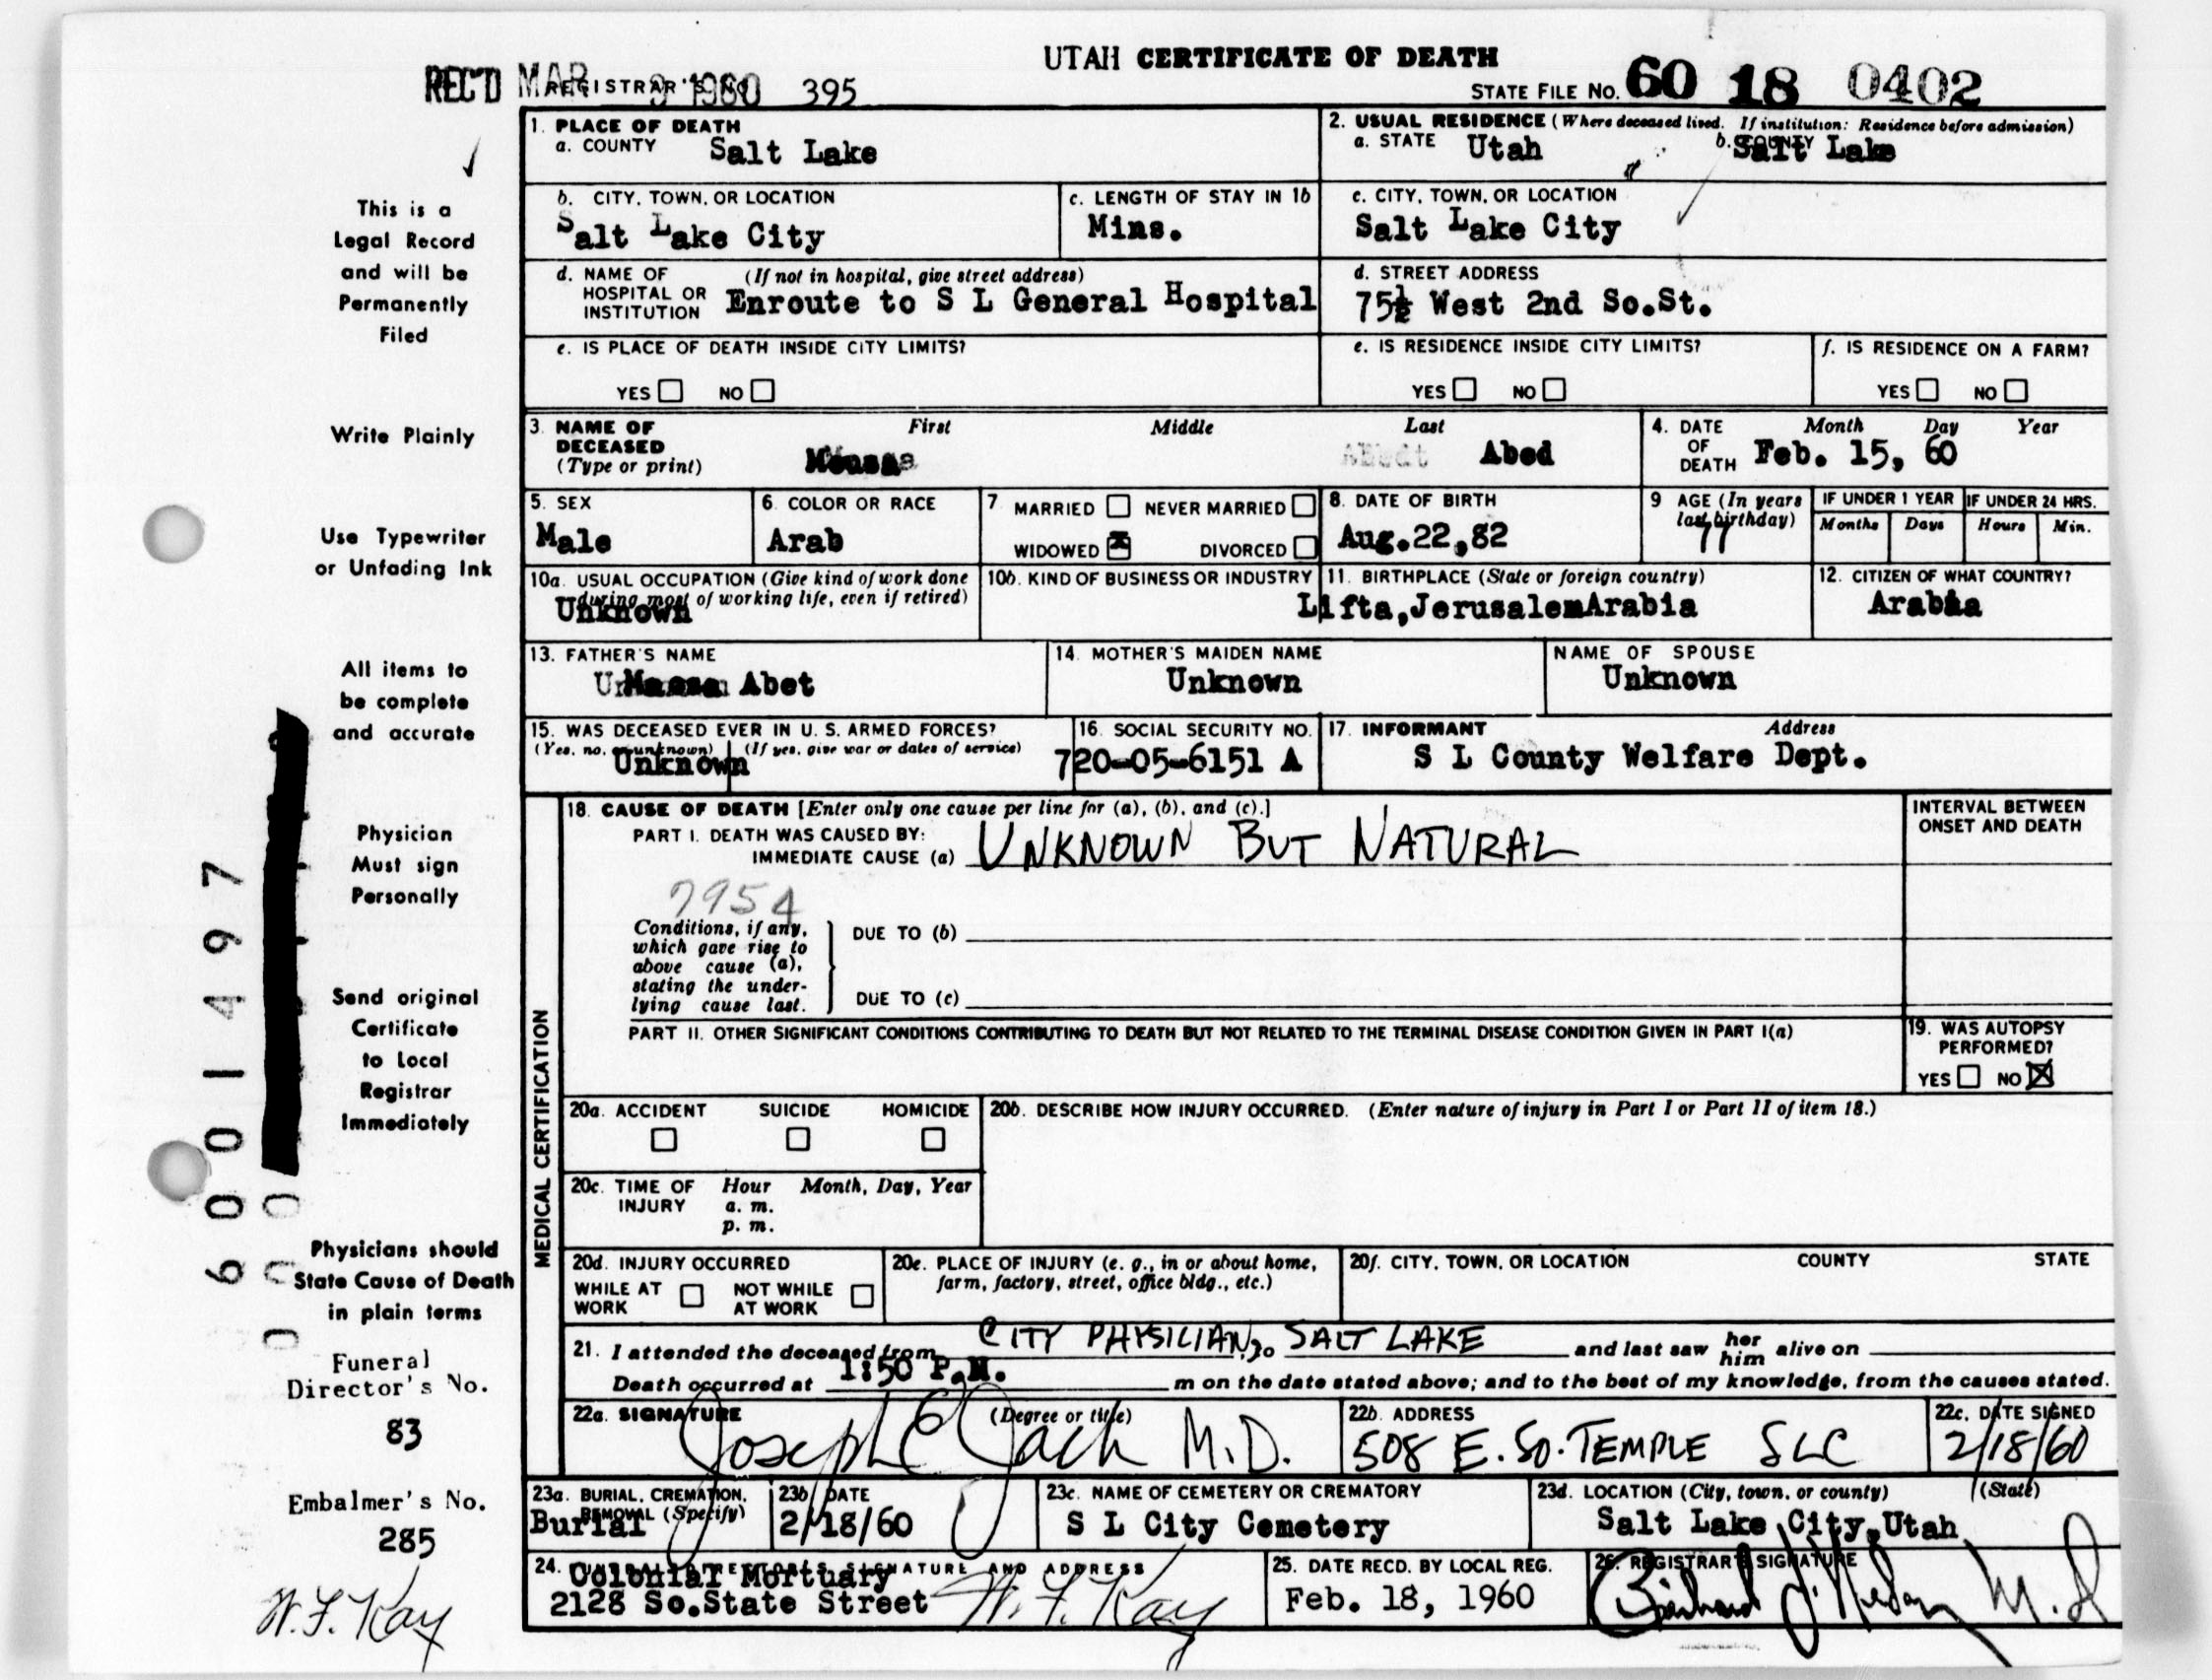 UTAH CERTIFICATE OF DEATH
REC'D MAR 9 1960 REGISTRAR'S NO. 395
STATE FILE NO. 60 18 0402
1. PLACE OF DEATH
a. COUNTY Salt Lake
2. USUAL RESIDENCE (Where deceased lived. If institution: Residence before admission)
a. STATE Utah b. COUNTY Salt Lake
b. CITY, TOWN, OR LOCATION
Salt Lake City
c. LENGTH OF STAY IN 1b
Mins.
c. CITY, TOWN, OR LOCATION
Salt Lake City
d. NAME OF HOSPITAL OR INSTITUTION (If not in hospital, give street address)
Enroute to S L General Hospital
d. STREET ADDRESS
75½ West 2nd So.St.
e. IS PLACE OF DEATH INSIDE CITY LIMITS?
YES NO
e. IS RESIDENCE INSIDE CITY LIMITS?
YES NO
f. IS RESIDENCE ON A FARM?
YES NO
3. NAME OF DECEASED (Type or print)
First Middle Last
Moussa Abedt Abed
4. DATE OF DEATH Month Day Year
Feb. 15, 60
5. SEX
Male
6. COLOR OR RACE
Arab
7 MARRIED NEVER MARRIED
WIDOWED X DIVORCED
8. DATE OF BIRTH
Aug.22,82
9 AGE (In years last birthday)
77
IF UNDER 1 YEAR
Months Days
IF UNDER 24 HRS.
Hours Min.
10a. USUAL OCCUPATION (Give kind of work done during most of working life, even if retired)
Unknown
10b. KIND OF BUSINESS OR INDUSTRY
11. BIRTHPLACE (State or foreign country)
Lifta,JerusalemArabia
12. CITIZEN OF WHAT COUNTRY?
Arabia
13. FATHER'S NAME
Abet
14. MOTHER'S MAIDEN NAME
Unknown
NAME OF SPOUSE
Unknown
15. WAS DECEASED EVER IN U. S. ARMED FORCES?
(Yes, no, or unknown) (If yes, give war or dates of service)
Unknown
16. SOCIAL SECURITY NO.
720-05-6151 A
17. INFORMANT Address
S L County Welfare Dept.
MEDICAL CERTIFICATION
18. CAUSE OF DEATH [Enter only one cause per line for (a), (b), and (c).]
PART I. DEATH WAS CAUSED BY:
IMMEDIATE CAUSE (a) UNKNOWN BUT NATURAL
INTERVAL BETWEEN ONSET AND DEATH
7954
Conditions, if any, which gave rise to above cause (a), stating the underlying cause last.
DUE TO (b)
DUE TO (c)
PART II. OTHER SIGNIFICANT CONDITIONS CONTRIBUTING TO DEATH BUT NOT RELATED TO THE TERMINAL DISEASE CONDITION GIVEN IN PART I(a)
19. WAS AUTOPSY PERFORMED?
YES NO X
20a. ACCIDENT SUICIDE HOMICIDE
20b. DESCRIBE HOW INJURY OCCURRED. (Enter nature of injury in Part I or Part II of item 18.)
20c. TIME OF INJURY Hour Month, Day, Year
a. m.
p. m.
20d. INJURY OCCURRED
WHILE AT WORK NOT WHILE AT WORK
20e. PLACE OF INJURY (e. g., in or about home, farm, factory, street, office bldg., etc.)
20f. CITY, TOWN, OR LOCATION COUNTY STATE
21. I attended the deceased from CITY PHYSICIAN, to SALT LAKE and last saw her him alive on
Death occurred at 1:50 P.M. m on the date stated above; and to the best of my knowledge, from the causes stated.
22a. SIGNATURE (Degree or title)
Joseph E Jack M.D.
22b. ADDRESS
508 E. SO. TEMPLE SLC
22c. DATE SIGNED
2/18/60
23a. BURIAL, CREMATION, REMOVAL (Specify)
Burial
23b DATE
2/18/60
23c. NAME OF CEMETERY OR CREMATORY
S L City Cemetery
23d. LOCATION (City, town, or county) (State)
Salt Lake City,Utah
24. FUNERAL DIRECTOR'S SIGNATURE AND ADDRESS
Colonial Mortuary
2128 So.State Street W. F. Kay
25. DATE RECD. BY LOCAL REG.
Feb. 18, 1960
26. REGISTRAR'S SIGNATURE
M.D
This is a
Legal Record
and will be
Permanently
Filed
Write Plainly
Use Typewriter
or Unfading Ink
All items to
be complete
and accurate
Physician
Must sign
Personally
Send original
Certificate
to Local
Registrar
Immediately
Physicians should
State Cause of Death
in plain terms
Funeral
Director's No.
83
Embalmer's No.
285
W. F. Kay
6001497